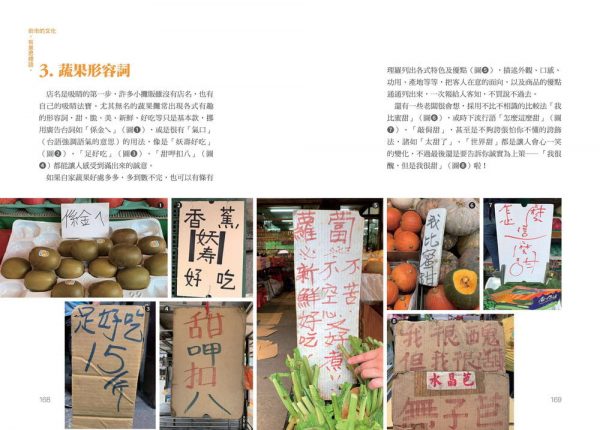 街市的文化
3. 蔬果形容詞
店名是吸睛的第一步,許多小攤販雖沒有店名,也有
自己的吸睛法寶。尤其無名的蔬果攤常出現各式有趣
的形容詞,甜、脆、美、新鮮、好吃等只是基本款,挪
用廣告台詞如「係金ㄟ」(圖❶),或是很有「氣口」
(台語強調語氣的意思)的用法,像是「妖壽好吃」
(圖❷)、「足好吃」(圖❸)、「甜呷扣八」(圖
❹)都能讓人感受到滿出來的誠意。
如果自家蔬果好處多多,多到數不完,也可以有條有
理羅列出各式特色及優點(圖❺),描述外觀、口感、
功用、產地等等,把客人在意的面向、以及商品的優點
通通列出來,一次報給人客知,不買說不過去。
還有一些老闆很會想,採用不比不相識的比較法「我
比蜜甜」(圖❻),或時下流行語「怎麼這麼甜」(圖
❼)、「敲侷甜」,甚至是不夠誇張怕你不懂的誇飾
法,諸如「太甜了」、「世界甜」都是讓人會心一笑
的變化,不過最後還是要告訴你誠實為上策——「我很
醜,但是我很甜」(圖❽)啦!
係金ㄟ
1
香蕉
妖寿
好吃
2
足好吃
15斤
3
甜
呷
扣
八
4
不苦
不空心好煮
新鮮好吃
5
我比蜜甜
6
怎麼
這
麼
7
我很醜
但我很
水晶芭
無子芭
8
168
169